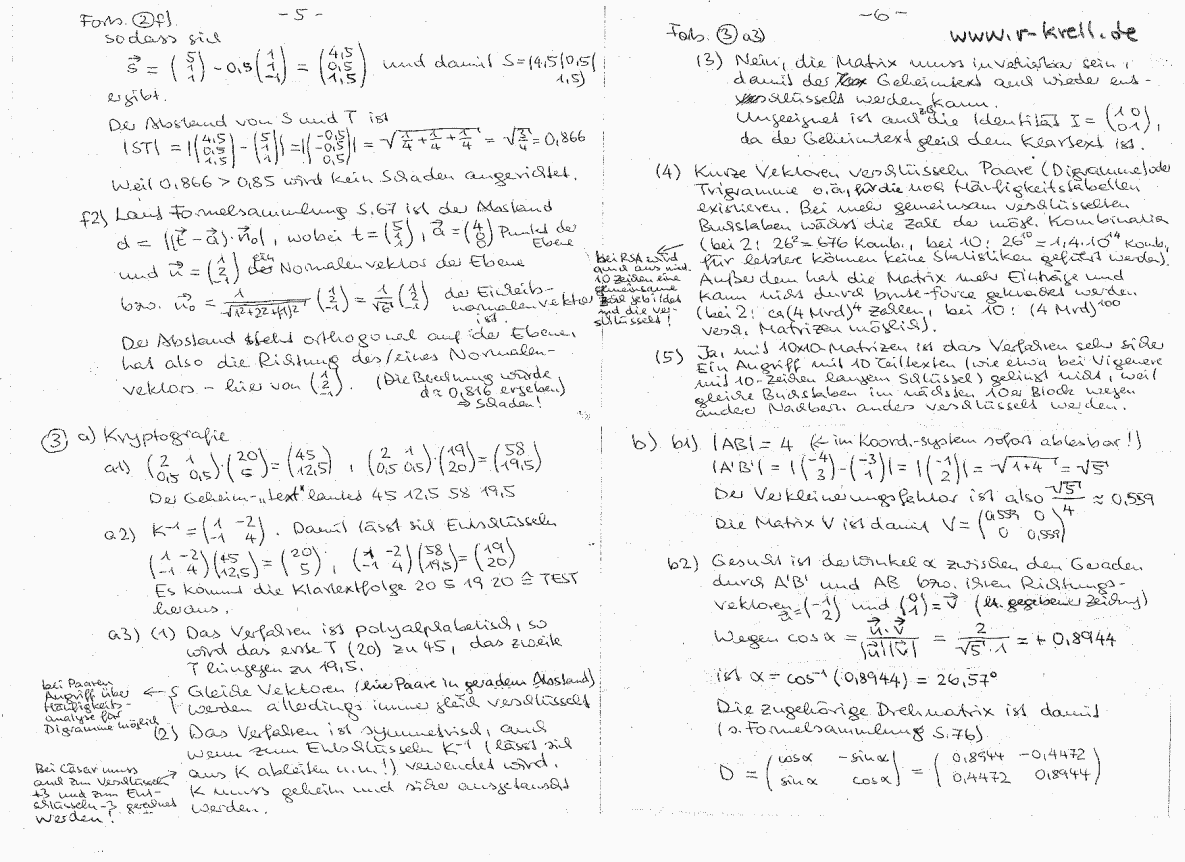 - 5 -
Forts. ② f1
sodass sich
s⃗ = (5 1 1) - 0,5 (1 1 -1) = (4,5 0,5 1,5) und damit S = (4,5|0,5|
1,5)
ergibt.
Der Abstand von S und T ist
|ST| = |(4,5 0,5 1,5) - (5 1 1)| = |(-0,5 -0,5 0,5)| = √(1/4 + 1/4 + 1/4) = √(3/4) = 0,866
Weil 0,866 > 0,85 wird kein Schaden angerichtet.
f2) Laut Formelsammlung S. 67 ist der Abstand
d = |(t⃗ - a⃗) · n⃗₀|, wobei t = (5 1 1), a⃗ = (4 0 0) Punkt der
Ebene
und n⃗ = (1 2 -1) ein Normalenvektor der Ebene
bzw. n⃗₀ = 1/√(1²+2²+(-1)²) (1 2 -1) = 1/√6 (1 2 -1) der Einheits-
normalenvektor
ist.
Der Abstand steht orthogonal auf der Ebene,
hat also die Richtung des/eines Normalen-
vektors - hier von (1 2 -1). (Die Berechnung würde
d = 0,816 ergeben)
⇒ Schaden!
③ a) Kryptografie
a1) (2 1 0,5 0,5) · (20 5) = (45 12,5) , (2 1 0,5 0,5) · (19 20) = (58 19,5)
Der Geheim-„text" lautet 45 12,5 58 19,5
a2) K⁻¹ = (1 -2 -1 4). Damit lässt sich Entschlüsseln
(1 -2 -1 4) (45 12,5) = (20 5) ; (1 -2 -1 4) (58 19,5) = (19 20)
Es kommt die Klartextfolge 20 5 19 20 ≙ TEST
heraus.
a3) (1) Das Verfahren ist polyalphabetisch, so
wird das erste T (20) zu 45, das zweite
T hingegen zu 19,5.
bei Paaren
Angriff über
Häufigkeits-
analyse für
Digramme möglich
← Gleiche Vektoren (hier Paare in geradem Abstand)
werden allerdings immer gleich verschlüsselt
(2) Das Verfahren ist symmetrisch, auch
wenn zum Entschlüsseln K⁻¹ (lässt sich
aus K ableiten u.u.!) verwendet wird.
K muss geheim und sicher ausgetauscht
werden.
Bei Cäsar muss
auch zum Verschlüsseln
+3 und zum Ent-
schlüsseln -3 gerechnet
werden!
- 6 -
Forts. ③ a3)
www.r-krell.de
(3) Nein, die Matrix muss invertierbar sein,
damit der Geheimtext auch wieder ent-
schlüsselt werden kann.
Ungeeignet ist auch z.B. die Identität I = (1 0 0 1),
da der Geheimtext gleich dem Klartext ist.
(4) Kurze Vektoren verschlüsseln Paare (Digramme) oder
Trigramme o.ä., für die noch Häufigkeitstabellen
existieren. Bei mehr gemeinsam verschlüsselten
Buchstaben wächst die Zahl der mögl. Kombination
(bei 2: 26² = 676 Komb., bei 10: 26¹⁰ = 1,4·10¹⁴ Komb,
für letztere können keine Statistiken geführt werden).
Außerdem hat die Matrix mehr Einträge und
kann nicht durch brute-force geknackt werden
(bei 2: ca (4 Mrd)⁴ Zahlen, bei 10: (4 Mrd)¹⁰⁰
versch. Matrizen möglich).
← bei RSA wird
auch aus mind.
10 Zeichen eine
gemeinsame
Zahl gebildet
und die ver-
schlüsselt!
(5) Ja, mit 10x10-Matrizen ist das Verfahren sehr sicher
Ein Angriff mit 10 Teiltexten (wie etwa bei Vigenere
mit 10-Zeichen langem Schlüssel) gelingt nicht, weil
gleiche Buchstaben im nächsten 10er Block wegen
anderer Nachbarn anders verschlüsselt werden.
b) b1) |AB| = 4 (← im Koord.-system sofort ablesbar!)
|A'B'| = |(-4 3) - (-3 1)| = |(-1 2)| = √(1+4) = √5
Der Verkleinerungsfaktor ist also √5/4 ≈ 0,559
Die Matrix V ist damit V = (0,559 0 0 0,559)
b2) Gesucht ist der Winkel α zwischen den Geraden
durch A'B' und AB bzw. ihren Richtungs-
vektoren u⃗ = (-1 2) und (0 1) = v⃗ (lt. gegebener Zeichng)
Wegen cos α = u⃗·v⃗/|u⃗||v⃗| = 2/√5·1 = + 0,8944
ist α = cos⁻¹(0,8944) = 26,57°
Die zugehörige Drehmatrix ist damit
(s. Formelsammlung S. 76)
D = (cos α -sin α sin α cos α) = (0,8944 -0,4472 0,4472 0,8944)